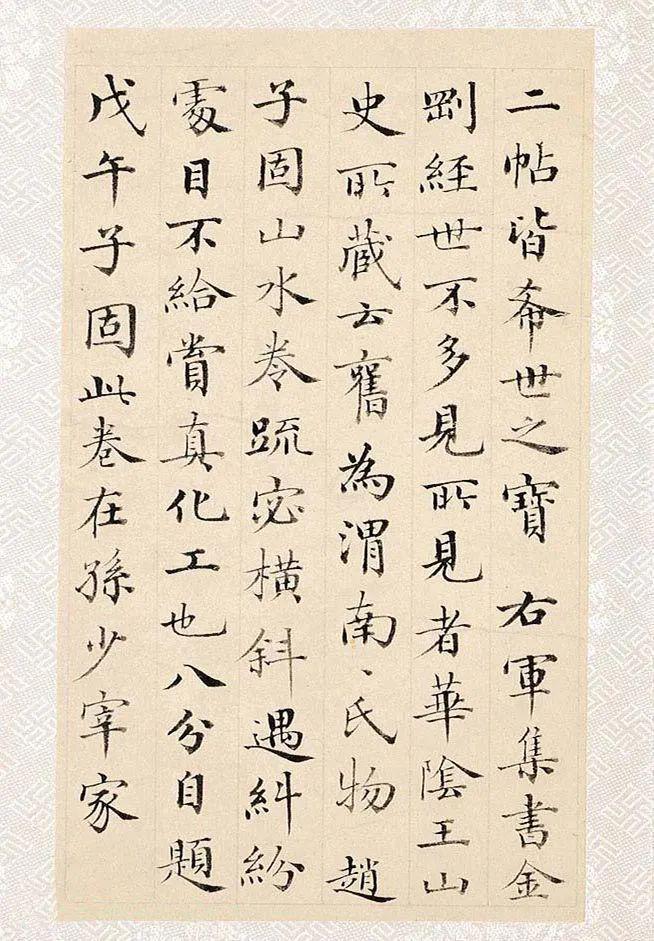 二帖皆希世之寶 右軍集書金
剛経世不多見所見者華陰王山
史所藏云舊為渭南、氏物 趙
子固山水卷䟽宻橫斜遇糾紛
處目不給賞真化工也八分自題
戊午子固此卷在孫少宰家